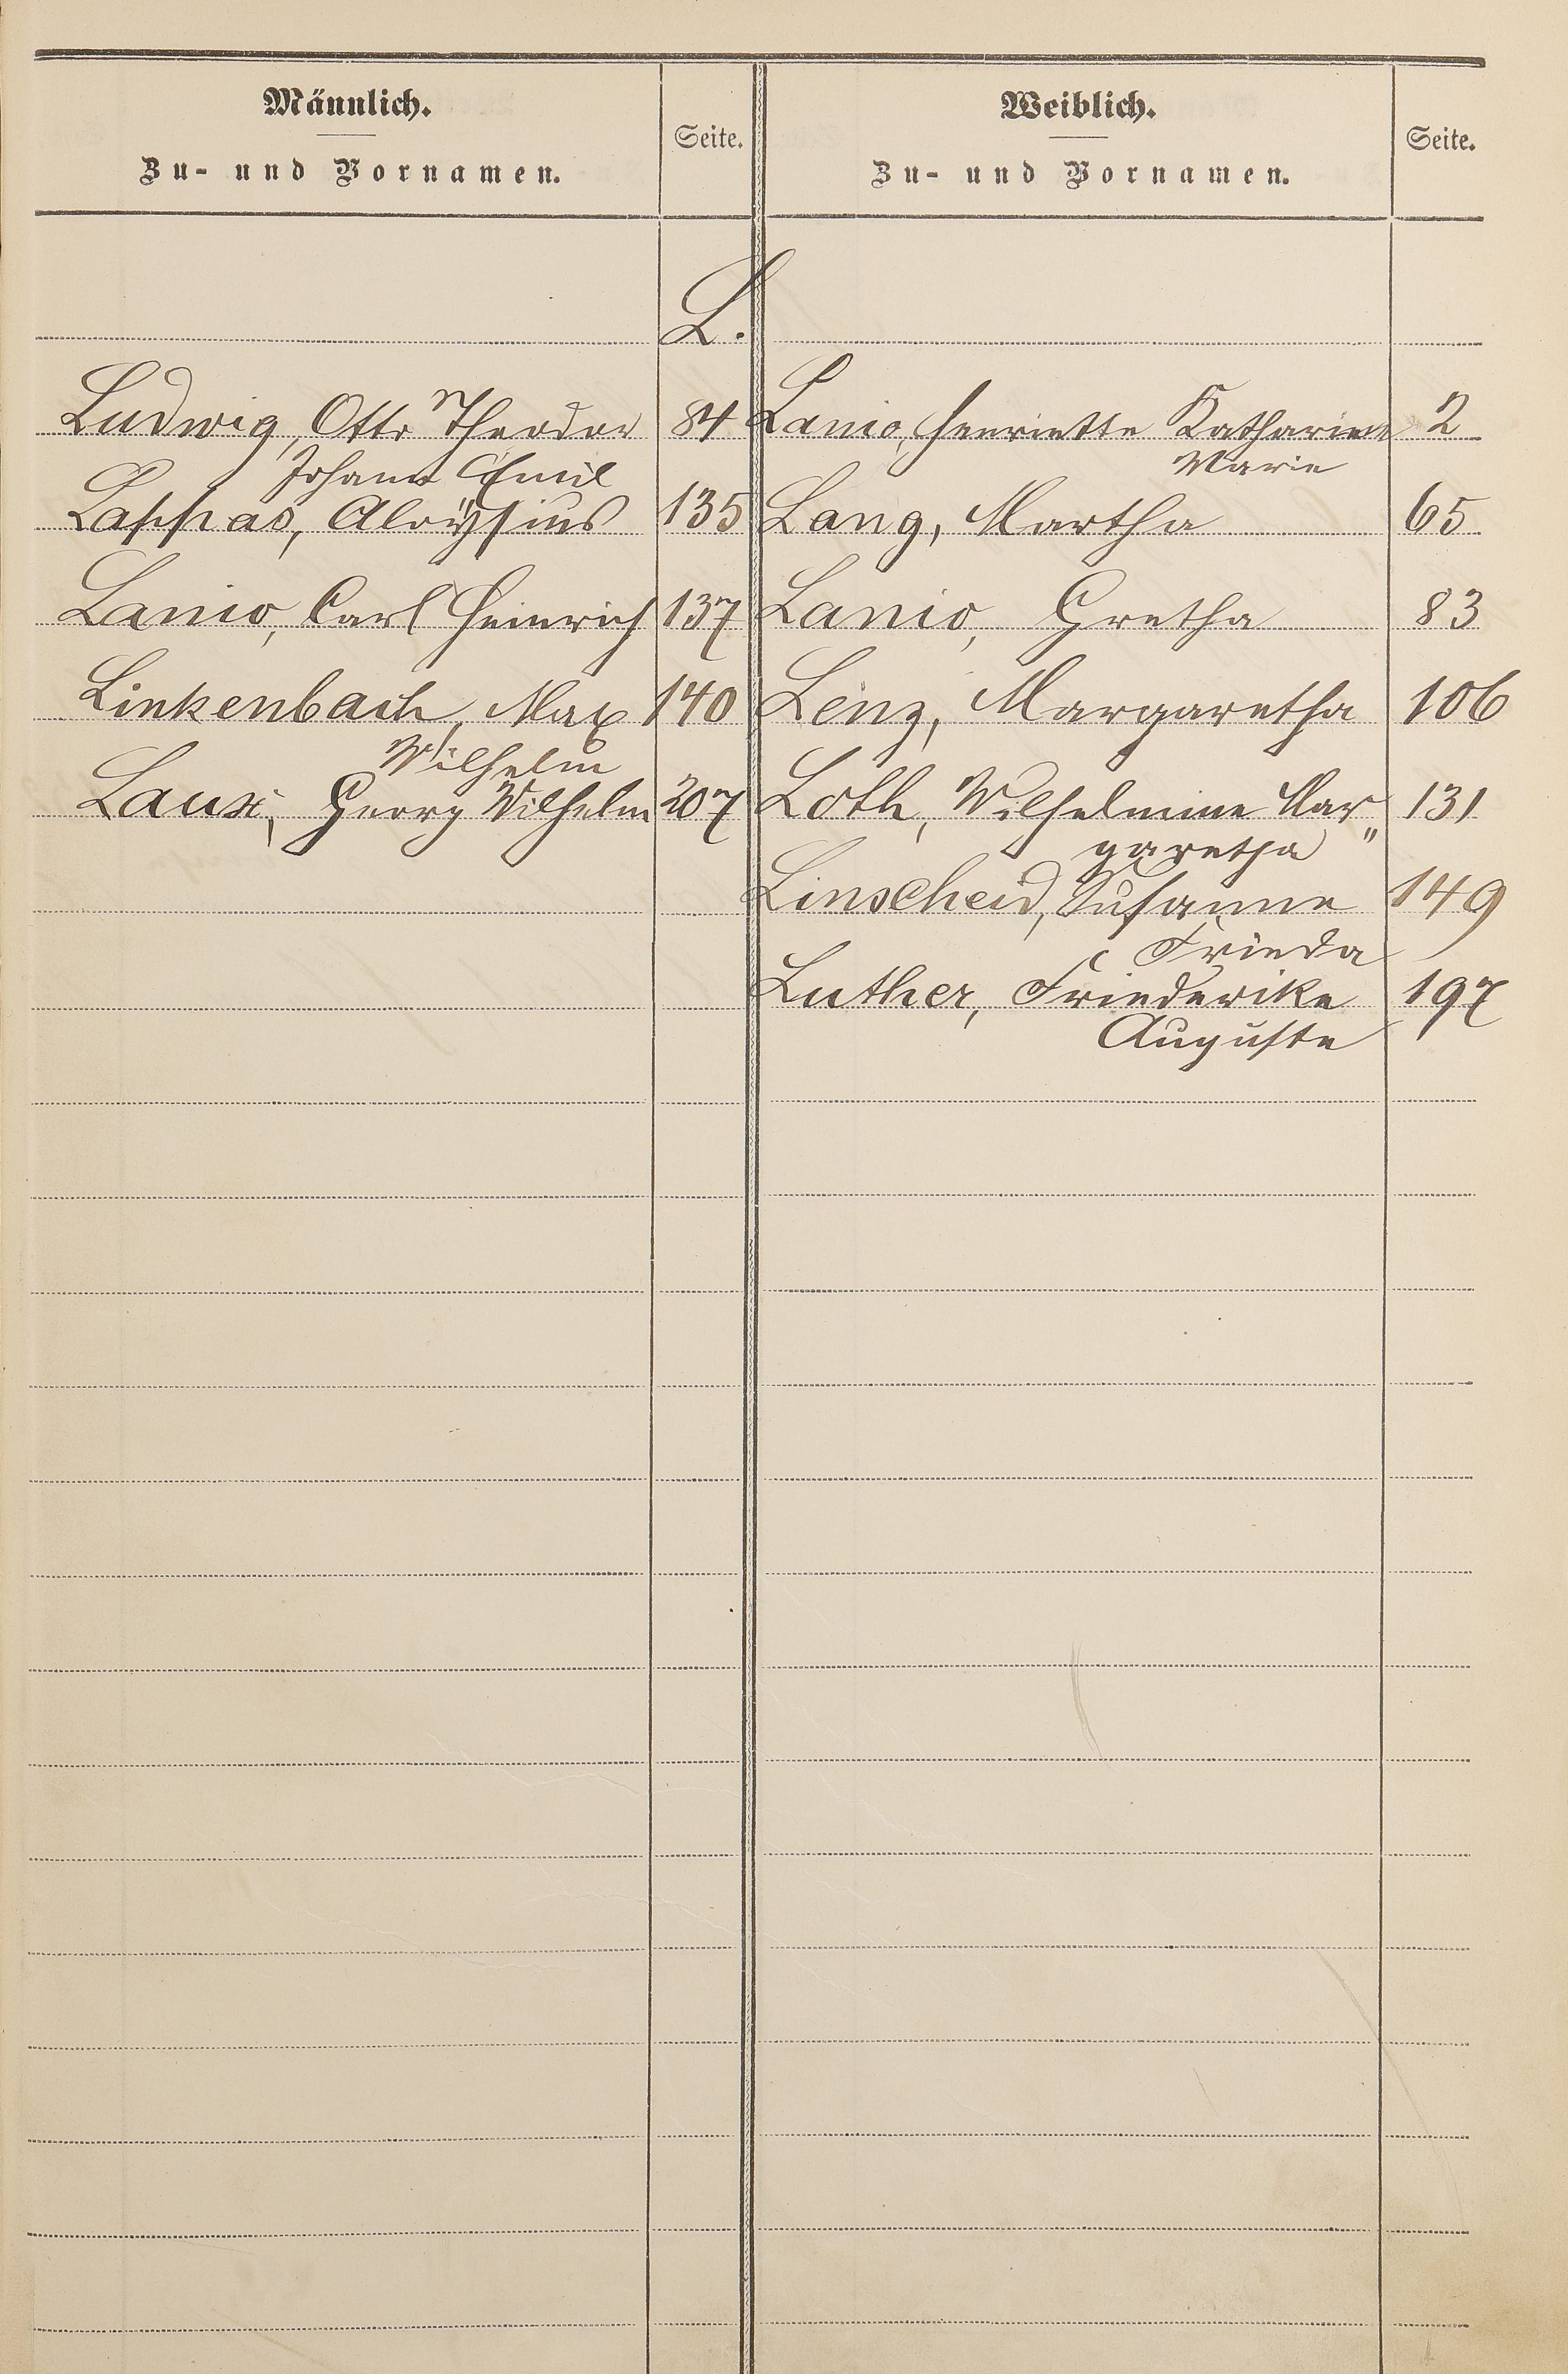 Männlich.
Zu- und Vornamen.
Seite.
Weiblich.
Zu- und Vornamen.
Seite.
L.
Ludwig, Otto Theodor 84
Johann Emil
Lappas, Aloÿsius 135
Lanio, Carl Heinrich 137
Linkenbach, Max 140
Wilhelm
Laux, Georg Wilhelm 207
Lanio, Henriette Katharine 2
Marie
Lang, Martha 65
Lanio, Gretha 83
Lenz, Margaretha 106
Loth, Wilhelmine Mar 131
garetha "
Linscheid, Susanne 149
Frieda
Luther, Friederike 197
Auguste